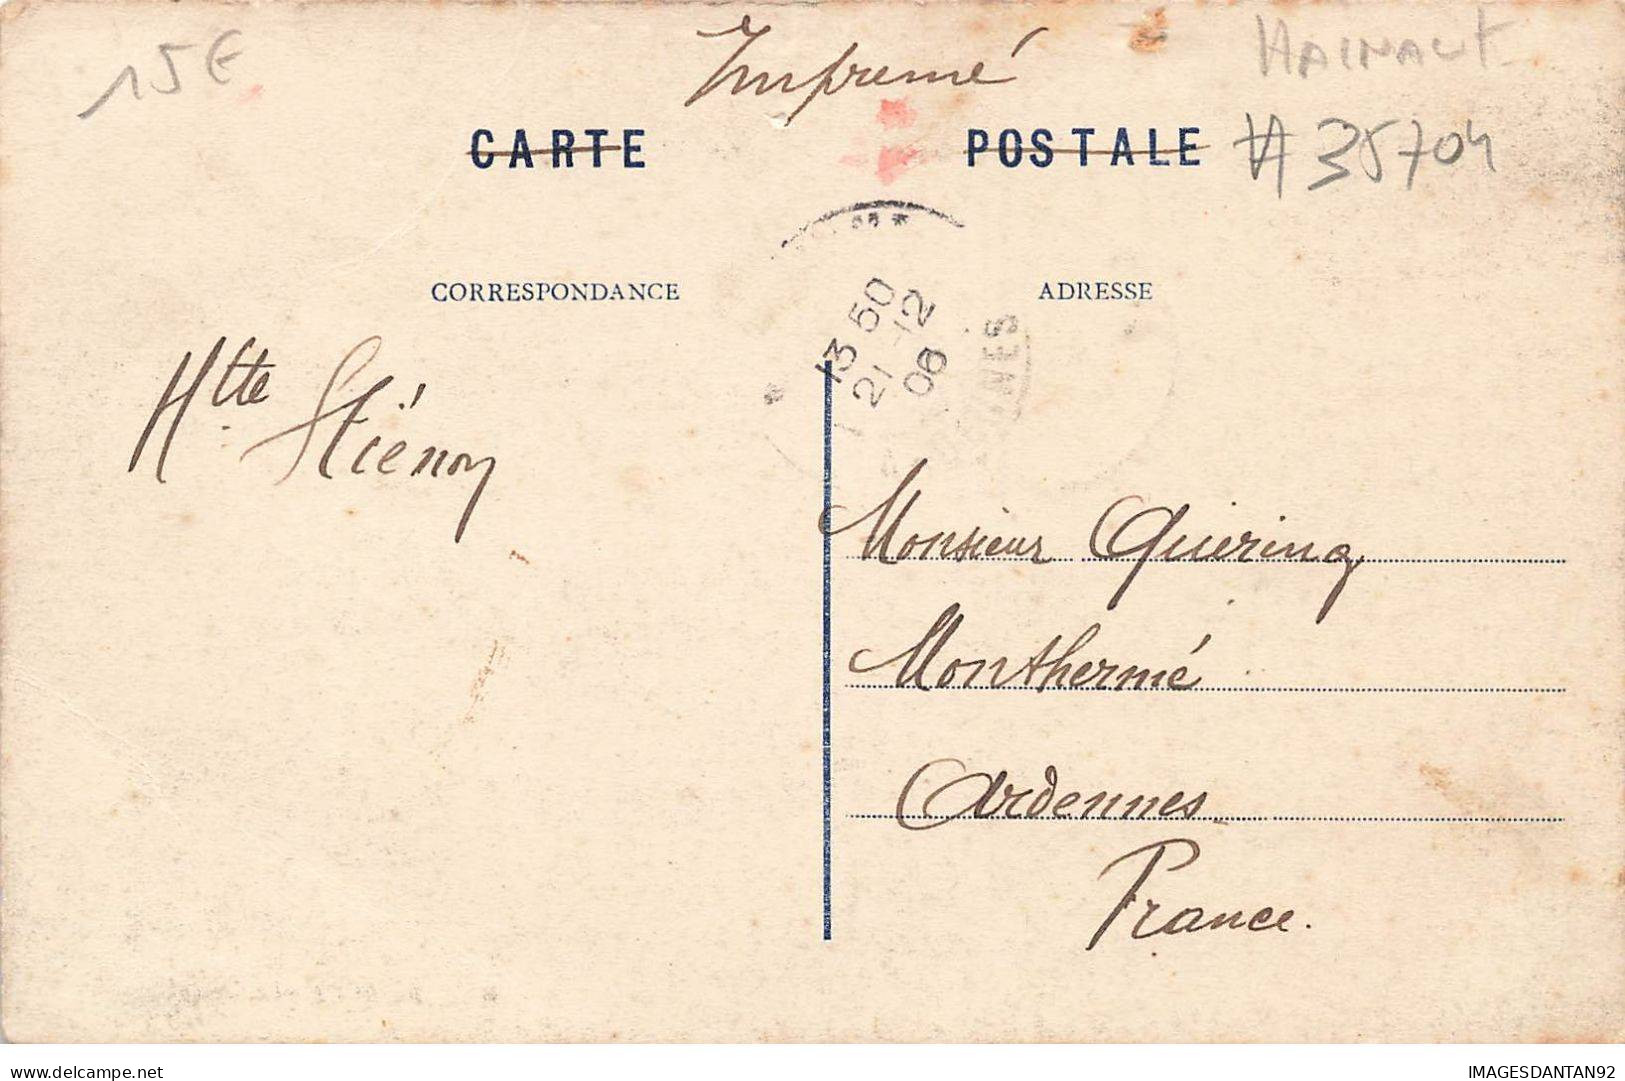 15€
Imprimé
HAINAUT
CARTE POSTALE
#35704
CORRESPONDANCE
ADRESSE
13 50
21-12
06
NES
Htte Stiénon
Monsieur Quiering
Monthermé
Ardennes
France.
delcampe.net
IMAGESDANTAN92